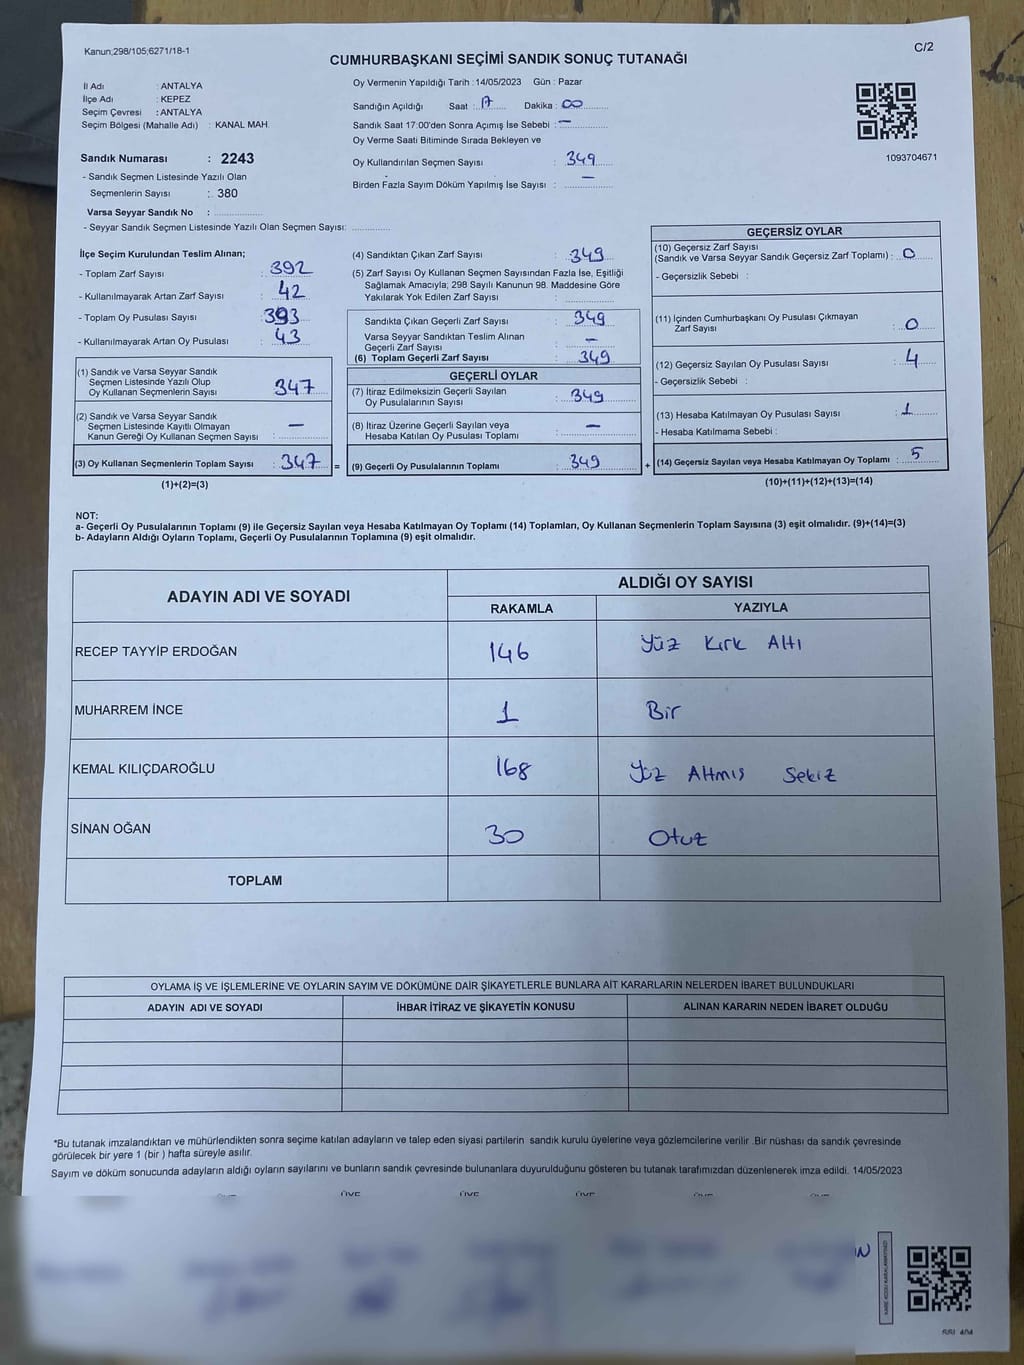 Kanun;298/105;6271/18-1
C/2
CUMHURBAŞKANI SEÇİMİ SANDIK SONUÇ TUTANAĞI
İl Adı : ANTALYA
İlçe Adı : KEPEZ
Seçim Çevresi : ANTALYA
Seçim Bölgesi (Mahalle Adı) : KANAL MAH.
Sandık Numarası : 2243
- Sandık Seçmen Listesinde Yazılı Olan
Seçmenlerin Sayısı : 380
Varsa Seyyar Sandık No :
- Seyyar Sandık Seçmen Listesinde Yazılı Olan Seçmen Sayısı:
Oy Vermenin Yapıldığı Tarih : 14/05/2023 Gün : Pazar
Sandığın Açıldığı Saat : 17 Dakika : 00
Sandık Saat 17:00'den Sonra Açımış İse Sebebi : —
Oy Verme Saati Bitiminde Sırada Bekleyen ve
Oy Kullandırılan Seçmen Sayısı : 349
Birden Fazla Sayım Döküm Yapılmış İse Sayısı : —
1093704671
İlçe Seçim Kurulundan Teslim Alınan;
- Toplam Zarf Sayısı : 392
- Kullanılmayarak Artan Zarf Sayısı : 42
- Toplam Oy Pusulası Sayısı : 393
- Kullanılmayarak Artan Oy Pusulası : 43
(1) Sandık ve Varsa Seyyar Sandık
Seçmen Listesinde Yazılı Olup
Oy Kullanan Seçmenlerin Sayısı : 347
(2) Sandık ve Varsa Seyyar Sandık
Seçmen Listesinde Kayıtlı Olmayan
Kanun Gereği Oy Kullanan Seçmen Sayısı : —
(3) Oy Kullanan Seçmenlerin Toplam Sayısı : 347 =
(1)+(2)=(3)
(4) Sandıktan Çıkan Zarf Sayısı : 349
(5) Zarf Sayısı Oy Kullanan Seçmen Sayısından Fazla İse, Eşitliği
Sağlamak Amacıyla; 298 Sayılı Kanunun 98. Maddesine Göre
Yakılarak Yok Edilen Zarf Sayısı :
Sandıkta Çıkan Geçerli Zarf Sayısı : 349
Varsa Seyyar Sandıktan Teslim Alınan
Geçerli Zarf Sayısı : —
(6) Toplam Geçerli Zarf Sayısı : 349
GEÇERLİ OYLAR
(7) İtiraz Edilmeksizin Geçerli Sayılan
Oy Pusulalarının Sayısı : 349
(8) İtiraz Üzerine Geçerli Sayılan veya
Hesaba Katılan Oy Pusulası Toplamı : —
(9) Geçerli Oy Pusulalarının Toplamı : 349 +
GEÇERSİZ OYLAR
(10) Geçersiz Zarf Sayısı
(Sandık ve Varsa Seyyar Sandık Geçersiz Zarf Toplamı) : 0
- Geçersizlik Sebebi :
(11) İçinden Cumhurbaşkanı Oy Pusulası Çıkmayan
Zarf Sayısı : 0
(12) Geçersiz Sayılan Oy Pusulası Sayısı : 4
- Geçersizlik Sebebi :
(13) Hesaba Katılmayan Oy Pusulası Sayısı : 1
- Hesaba Katılmama Sebebi :
(14) Geçersiz Sayılan veya Hesaba Katılmayan Oy Toplamı : 5
(10)+(11)+(12)+(13)=(14)
NOT:
a- Geçerli Oy Pusulalarının Toplamı (9) ile Geçersiz Sayılan veya Hesaba Katılmayan Oy Toplamı (14) Toplamları, Oy Kullanan Seçmenlerin Toplam Sayısına (3) eşit olmalıdır. (9)+(14)=(3)
b- Adayların Aldığı Oyların Toplamı, Geçerli Oy Pusulalarının Toplamına (9) eşit olmalıdır.
ADAYIN ADI VE SOYADI
ALDIĞI OY SAYISI
RAKAMLA YAZIYLA
RECEP TAYYİP ERDOĞAN 146 Yüz Kırk Altı
MUHARREM İNCE 1 Bir
KEMAL KILIÇDAROĞLU 168 Yüz Altmış Sekiz
SİNAN OĞAN 30 Otuz
TOPLAM
OYLAMA İŞ VE İŞLEMLERİNE VE OYLARIN SAYIM VE DÖKÜMÜNE DAİR ŞİKAYETLERLE BUNLARA AİT KARARLARIN NELERDEN İBARET BULUNDUKLARI
ADAYIN ADI VE SOYADI İHBAR İTİRAZ VE ŞİKAYETİN KONUSU ALINAN KARARIN NEDEN İBARET OLDUĞU
*Bu tutanak imzalandıktan ve mühürlendikten sonra seçime katılan adayların ve talep eden siyasi partilerin sandık kurulu üyelerine veya gözlemcilerine verilir .Bir nüshası da sandık çevresinde
görülecek bir yere 1 (bir ) hafta süreyle asılır.
Sayım ve döküm sonucunda adayların aldığı oyların sayılarını ve bunların sandık çevresinde bulunanlara duyurulduğunu gösteren bu tutanak tarafımızdan düzenlenerek imza edildi. 14/05/2023